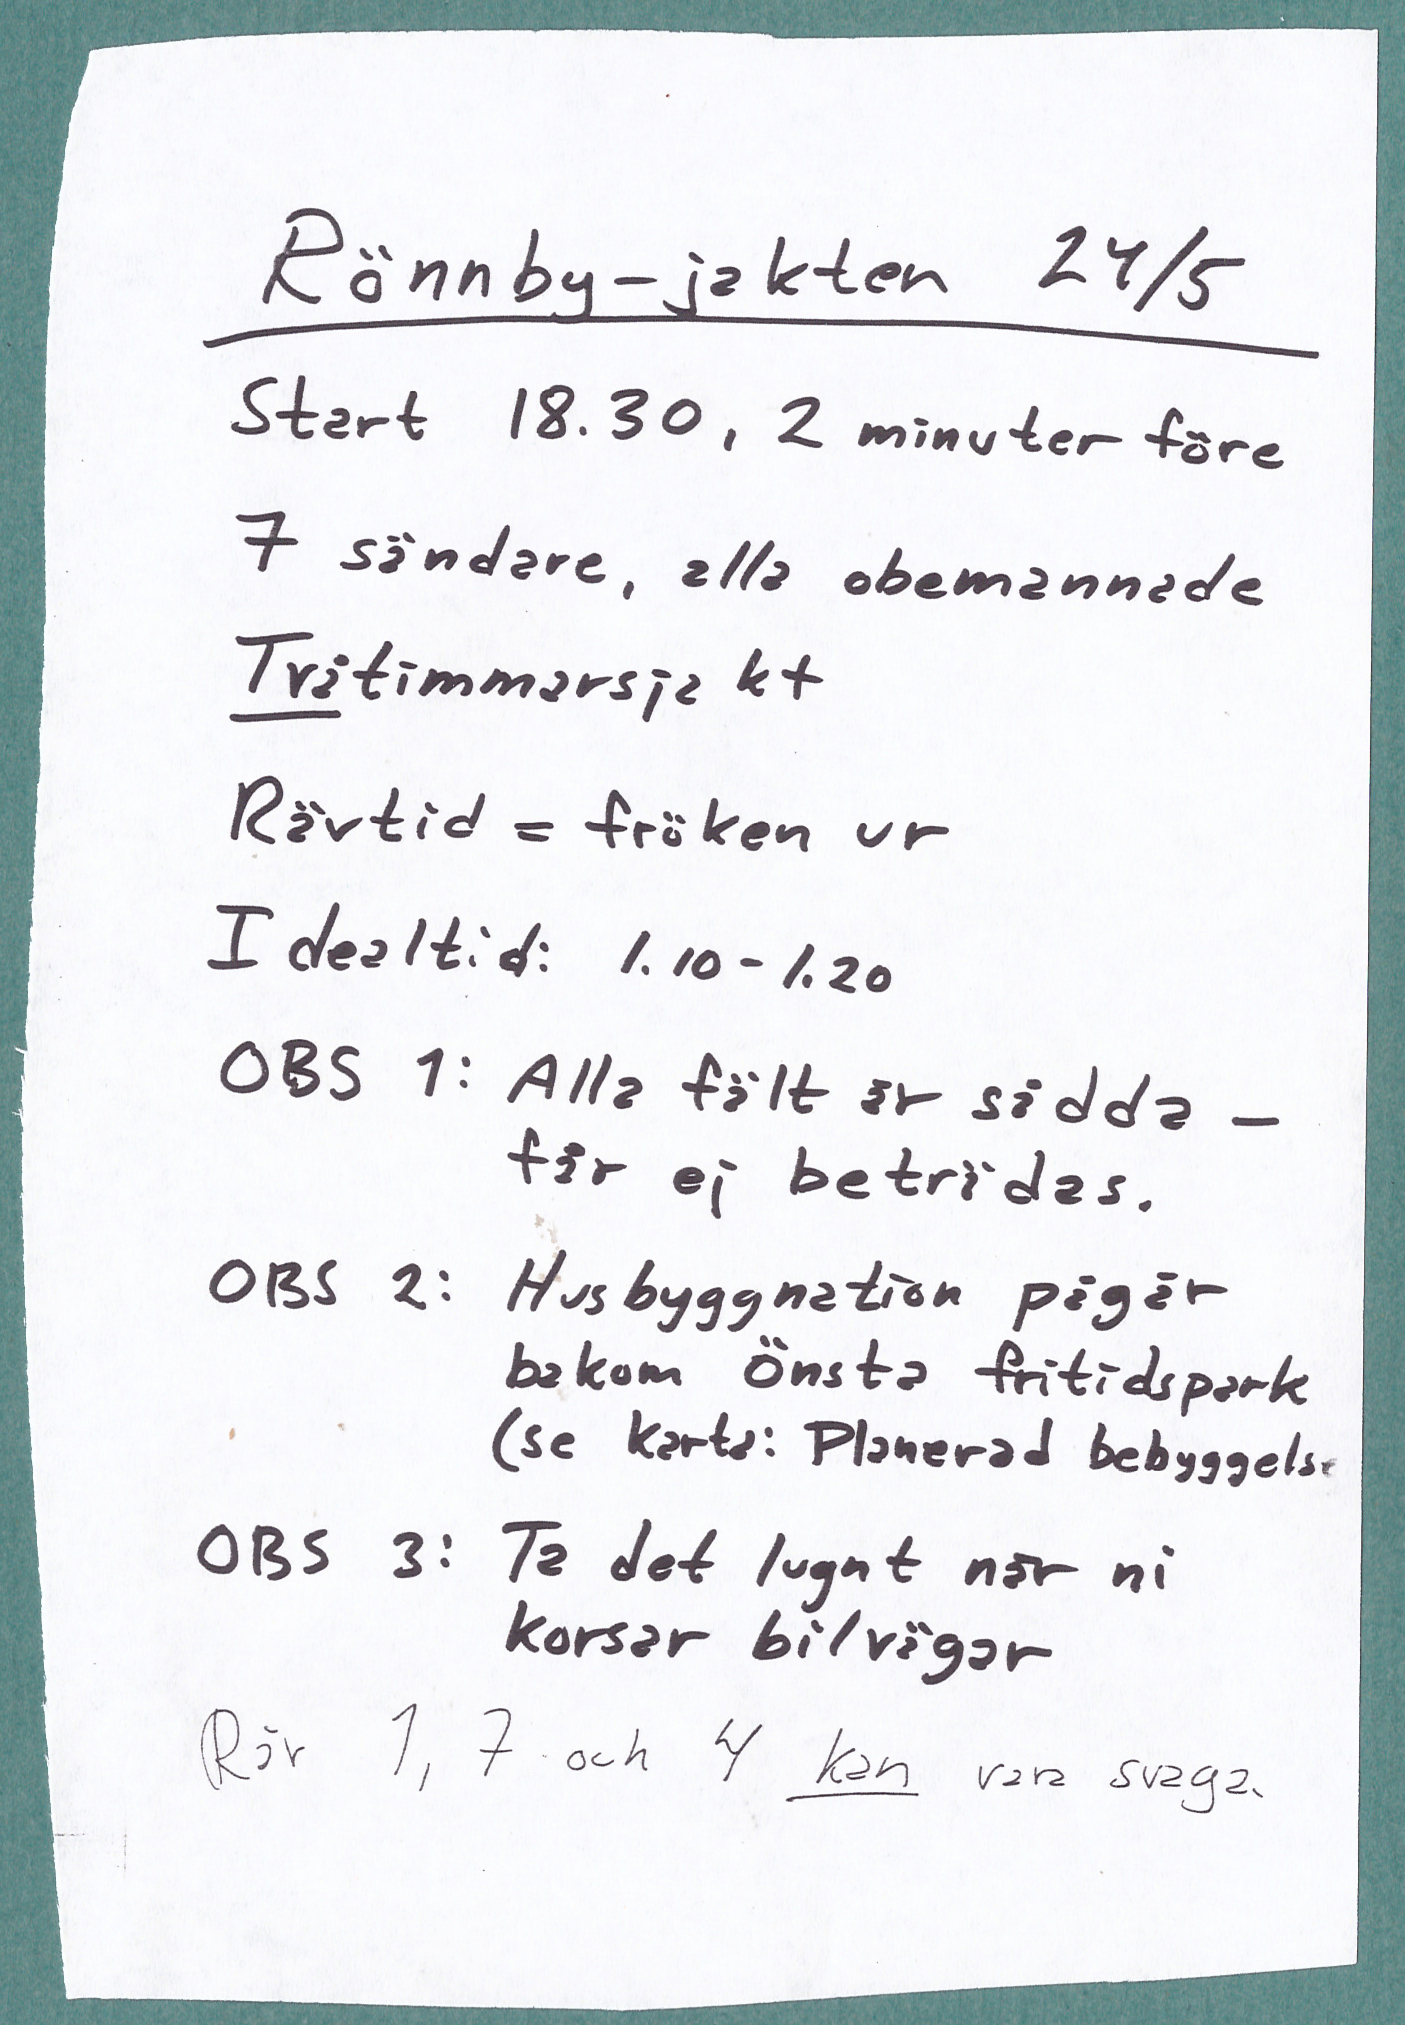 Rönnby-jakten 24/5
Start 18.30, 2 minuter före
7 sändare, alla obemannade
Tvåtimmarsjakt
Rävtid = fröken ur
Idealtid: 1.10-1.20
OBS 1: Alla fält är sådda -
får ej beträdas.
OBS 2: Husbyggnation pågår
bakom Önsta fritidspark
(se karta: Planerad bebyggelse
OBS 3: Ta det lugnt när ni
korsar bilvägar
Räv 1, 7 och 4 kan vara svaga.